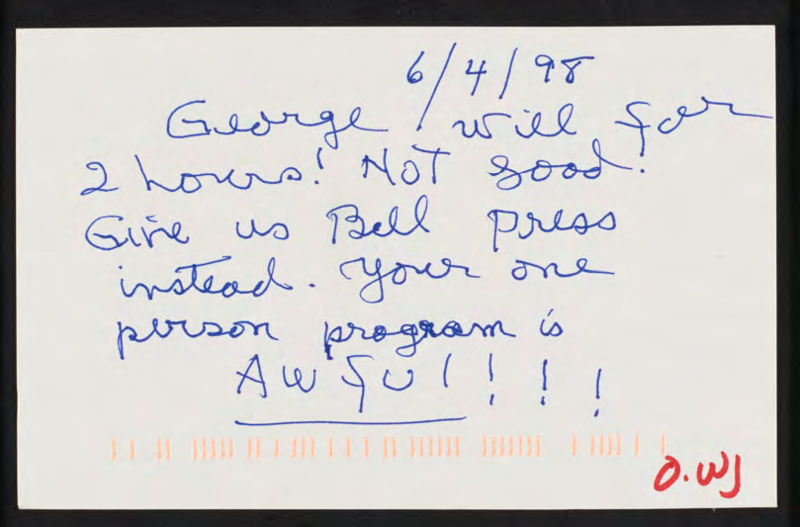 6/4/98
George will for
2 hours! Not good!
Give us Bill press
instead. Your one
person program is
Awful!!!!
O.WJ